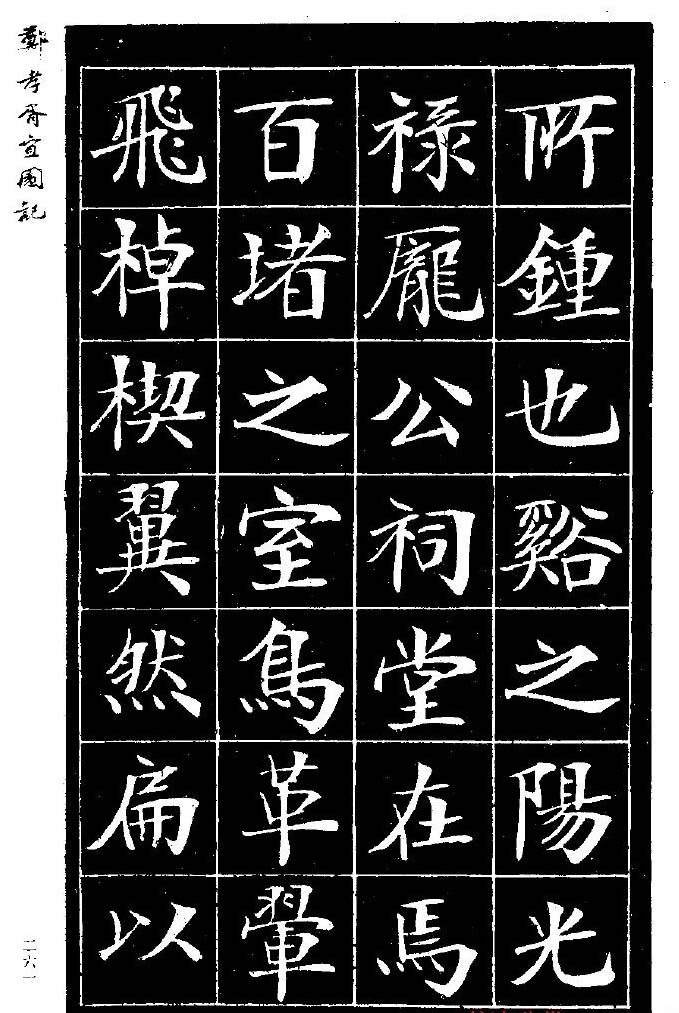 所鍾也谿之陽光
祿龐公祠堂在焉
百堵之室鳥革翬
飛棹楔翼然扁以
鄭孝胥宣園記
二六一